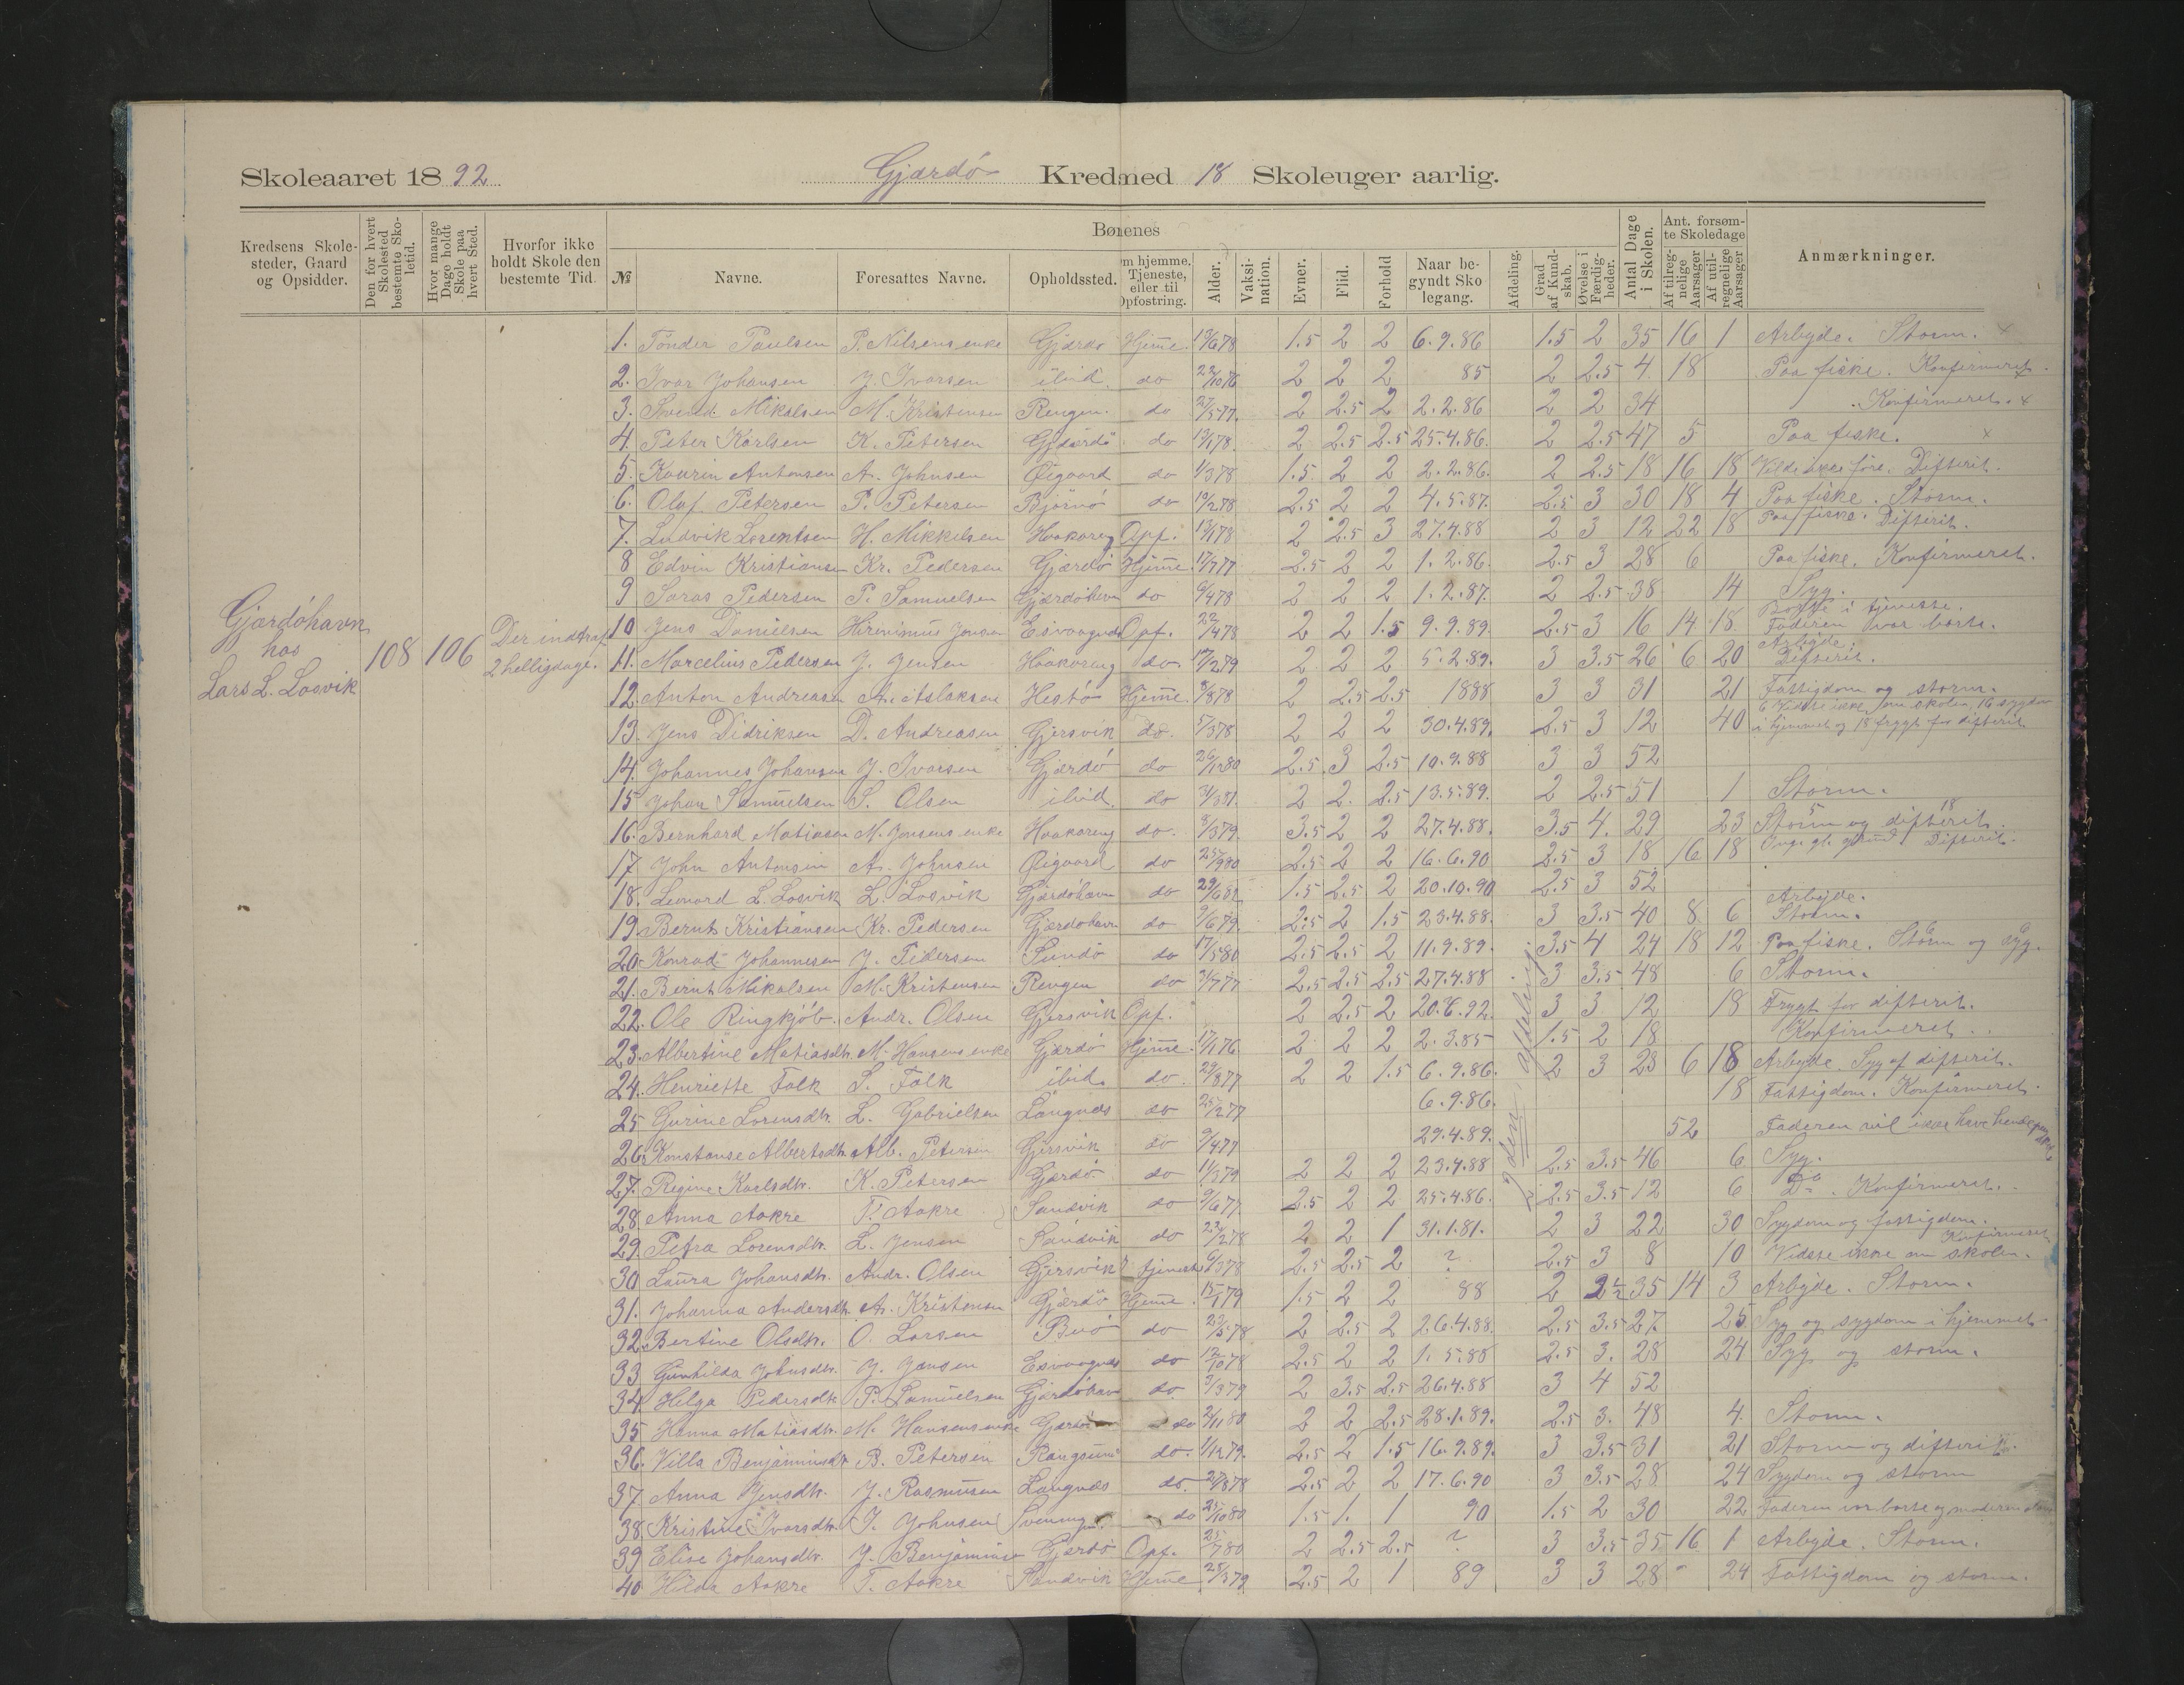 Skoleaaret 1892
Gjærdö Kreds med 18 Skoleuger aarlig.
Kredsens Skolesteder, Gaard og Opsidder.
Den for hvert Skolested bestemte Skoletid.
Hvor mange Dage holdt Skole paa hvert Sted.
Hvorfor ikke holdt Skole den bestemte Tid.
Børnenes
№ Navne. Foresattes Navne. Opholdssted. Om hjemme, Tjeneste, eller til Opfostring. Alder. Vaksination. Evner. Flid. Forhold Naar begyndt Skolegang. Afdeling. Grad af Kundskab. Øvelse i Færdigheder. Antal Dage i Skolen. Ant. forsømte Skoledage Af tilregnelige Aarsager Af utilregnelige Aarsager Anmærkninger.
Gjærdöhavn
hos
Lars L. Losvik
108 106
Der indtraf
2 helligdage.
2den afdeling
1. Tönder Paulsen P. Nilsens enke Gjærdö Hjeme. 1.5 2 2 6.9.86 1.5 2 35 16 1 Arbeyde. Storm. x
2. Ivar Johansen J. Ivarsen ibid. do 2 2 2 85 2 2.5 4 18 Paa fiske. Konfirmeret. x
3. Svend Mikalsen M. Kristensen Rengen. do 27/5 77. 2 2.5 2 2.2.86 2 2 34 Konfirmeret. x
4. Peter Karlsen K. Petersen Gjærdö do 2 2.5 2.5 25.4.86. 2 2.5 47 5 Paa fiske. x
5. Kaurin Antonsen A. Johnsen Øigaard do 1/3 78 1.5 2 2 2.2.86. 2 2.5 18 16 18 Vilde ikke före. Difterit.
6. Olaf Petersen P. Petersen Björnö do 2.5 2 2 4.5.87. 2.5 3 30 18 4 Paa fiske. Storm.
7. Ludvik Lorentsen H. Mikkelsen Haakoreng Opf. 2 2.5 3 27.4.88 2 3 12 22 18 Paa fiske. Difterit.
8 Edvin Kristiansen Kr. Pedersen Gjærdö Hjeme. 2.5 2 2 1.2.86. 2.5 3 28 6 Paa fiske. Konfirmeret.
9 Saras Pedersen P. Samuelsen Gjærdöhavn do 2 2 2 1.2.87. 2 2.5 38 14 Syg.
10 Jens Danielsen Hirenimus Jensen Esvaagnes Opf. 2 2 1.5 9.9.89. 2.5 3 16 14 18 Borte i tjeneste. Faderen var borte.
11. Marcelius Pedersen J. Jensen Haakoreng do. 2 2 2 5.2.89. 3 3.5 26 6 20 Arbeyde. Difterit.
12. Anton Andreasen A. Aslaksen Hestö Hjeme. 2 2.5 2.5 1888 3 3 31 21 Fattigdom og storm.
13. Jens Didriksen D. Andreasen Gjersvik do. 5/3 78. 2 2 2 30.4.89. 2.5 3 12 40 6 Vidste ikke om skolen, 16 sygdom i hjemmet og 18 frygt for difterit
14. Johannes Johansen J. Ivarsen Gjærdö do 2.5 3 2.5 10.9.88 3 3 52
15 Johan Samuelsen S. Olsen ibid. do 2 2. 2.5 13.5.89. 2 2.5 51 1 Storm.
16. Bernhard Matiasen M. Jensens enke Haakoreng do. 3.5 2 2 27.4.88. 3.5 4. 29 23 Storm 5 og difterit 18.
17. John Antonsen A. Johnsen Øigaard do 2.5 2 2 16.6.90 2.5 3 18 16 18 Difterit.
18. Leonard L. Losvik L. Losvik Gjærdöhavn do 1.5 2.5 2 20.10.90 2.5 3 52
19. Bernt Kristiansen Kr. Pedersen Gjærdöhavn do 9/6 79. 2.5 2 1.5 23.4.88. 3 3.5 40 8 6 Arbejde. Storm.
20. Konrad Johannesen J. Pedersen Sundö do 17/5 80 2.5 2.5 2 11.9.89. 3.5 4 24 18 12 Paa fiske. Storm 6 og syg. 6
21. Bernt Mikalsen M. Kristensen Rengen do 2.5 2.5 2.5 27.4.88 3 3.5 48 6 Storm.
22. Ole Ringkjöb. Andr. Olsen Gjersvik Opf. 2 2.5 2 20.6.92. 3 3 12 18 Frygt for difterit.
23. Albertine Matiasdtr. M. Hansens enke Gjærdö Hjeme. 2 2 2 2.3.85 1.5 2 18 Konfirmeret.
24. Henriette Falk S. Falk ibid. do. 2 2 1.5 6.9.86. 2 3 28 6 18 Arbeyde. Syg af difterit.
25 Gurine Lorensdtr. L. Gabrielsen Langnes do 6.9.86. 18 Fattigdom. Konfirmeret.
26. Konstanse Albertsdtr. Alb. Petersen Gjersvik do 9/4 77 29.4.89. 52 Faderen vil ikke have hende paa skole
27. Regine Karlsdtr. K. Petersen Gjærdö do 2 2 2 23.4.88 2.5 3.5 46 6 Syg.
28. Anna Aakre T. Aakre Sandvik do 9/6 77 2.5 2 2 25.4.86. 2.5 3.5 12 6 Do. Konfirmeret.
29. Petra Lorensdtr. L. Jensen Sandvik do 2 2 1 31.1.81. 2 3 22 30 Sygdom og fattigdom. Konfirmeret
30 Laura Johansdtr. Andr. Olsen Gjersvik tjeneste 2.5 2.5 2 ? 2.5 3 8 10 Vidste ikke om skolen.
31. Johanna Andersdtr. A. Kristensen Gjærdö Hjeme. 1.5 2 2 88 2 35 14 3 Arbeyde. Storm.
32. Bertine Olsdtr. O. Larsen Buö do 2 2.5 2 26.4.88. 2.5 3.5 27. 25 Syg og sygdom i hjemmet
33 Gunhilda Johnsdtr. J. Jensen Esvaagnes do 2.5 2 2 1.5.88 2.5 3. 28 24 Syg og storm.
34 Helga Pedersdtr. P. Samuelsen Gjærdöhavn do 2 3.5 2.5 26.4.88 3 4 52
35 Hanna Matiasdtr. M. Hansens enke Gjærdö do 2 2 2.5 28.1.89. 2.5 3. 48 4. Storm.
36. Villa Benjaminsdtr. B. Petersen Rangsund do. 1/12 79. 2.5 2 1.5 16.9.89. 3 3.5 31 21 Storm og difterit.
37. Anna Jensdtr. J. Rasmussen Langnes do. 2.5 2 2 17.6.90 3 3.5 28 24 Sygdom og storm
38. Kristine Ivarsdtr. I. Johnsen do 1.5 1. 1 90 1.5 2 30 22 Faderen var borte og moderen
39 Elise Johansdtr. J. Benjaminsen Gjærdö Opf. 2 2.5 2.5 ? 3 3.5 35 16. 1 Arbejde. Storm.
40 Hilda Aakre T. Aakre Sandvik Hjeme 2.5 2 1 89 3 3 28 - 24 Fattigdom og storm.